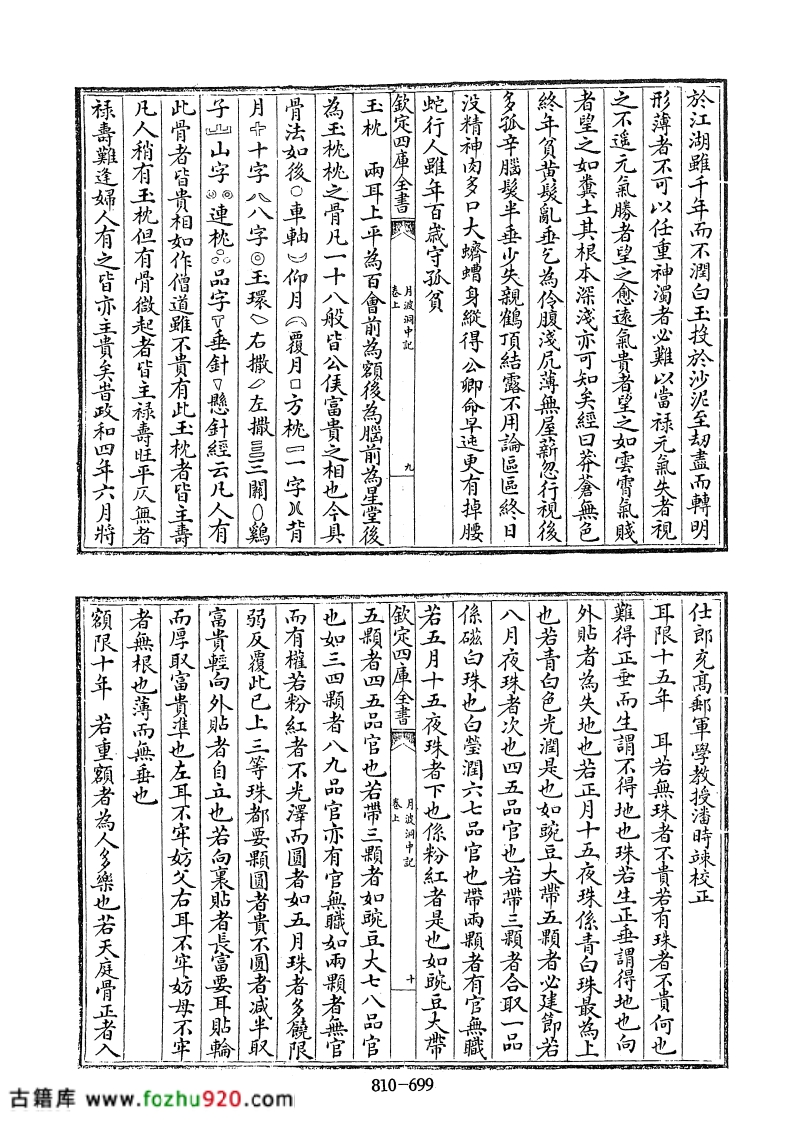 於江湖雖千年而不潤白玉投於沙泥至劫盡而轉明
形薄者不可以任重神濁者必難以當祿元氣失者視
之不遙元氣勝者望之愈遠氣貴者望之如雲霄氣賤
者望之如糞土其根本深淺亦可知矣經曰莽蒼無色
終年貧黄髮亂垂乞為伶腹淺尻薄無屋薪忽行視後
多孤辛腦髮半垂少失親鶴頂結露不用論區區終日
没精神肉多口大蠐螬身縱得公卿命早迍更有掉腰
蛇行人雖年百歲守孤貧
欽定四庫全書 月波洞中記 卷上 九
玉枕 兩耳上平為百會前為額後為腦前為星堂後
為玉枕枕之骨凡一十八般皆公侯富貴之相也今具
骨法如後 車軸 仰月 覆月 方枕 一字 背
月 十字 八字 玉環 右撒 左撒 三關 鷄
子 山字 連枕 品字 垂針 懸針經云凡人有
此骨者皆貴相如作僧道雖不貴有此玉枕者皆主壽
凡人稍有玉枕但有骨微起者皆主禄壽旺平仄無者
禄壽難逢婦人有之皆亦主貴矣昔政和四年六月將
仕郎充髙郵軍學教授潘時竦校正
耳限十五年 耳若無珠者不貴若有珠者不貴何也
難得正垂而生謂不得地也珠若生正垂謂得地也向
外貼者為失地也若正月十五夜珠係青白珠最為上
也若青白色光潤是也如豌豆大帶五顆者必建節若
八月夜珠者次也四五品官也若帶三顆者合取一品
係磁白珠也白瑩潤六七品官也帶兩顆者有官無職
若五月十五夜珠者下也係粉紅者是也如豌豆大帶
欽定四庫全書 月波洞中記 卷上 十
五顆者四五品官也若帶三顆者如豌豆大七八品官
也如三四顆者八九品官亦有官無職如兩顆者無官
而有權若粉紅者不光澤而圓者如五月珠者多饒限
弱反覆此已上三等珠都要顆圓者貴不圓者减半取
富貴輕向外貼者自立也若向裏貼者長富要耳貼輪
而厚取富貴準也左耳不牢妨父右耳不牢妨母不牢
者無根也薄而無垂也
額限十年 若重額者為人多樂也若天庭骨正者入
810-699
古籍库 www.fozhu920.com